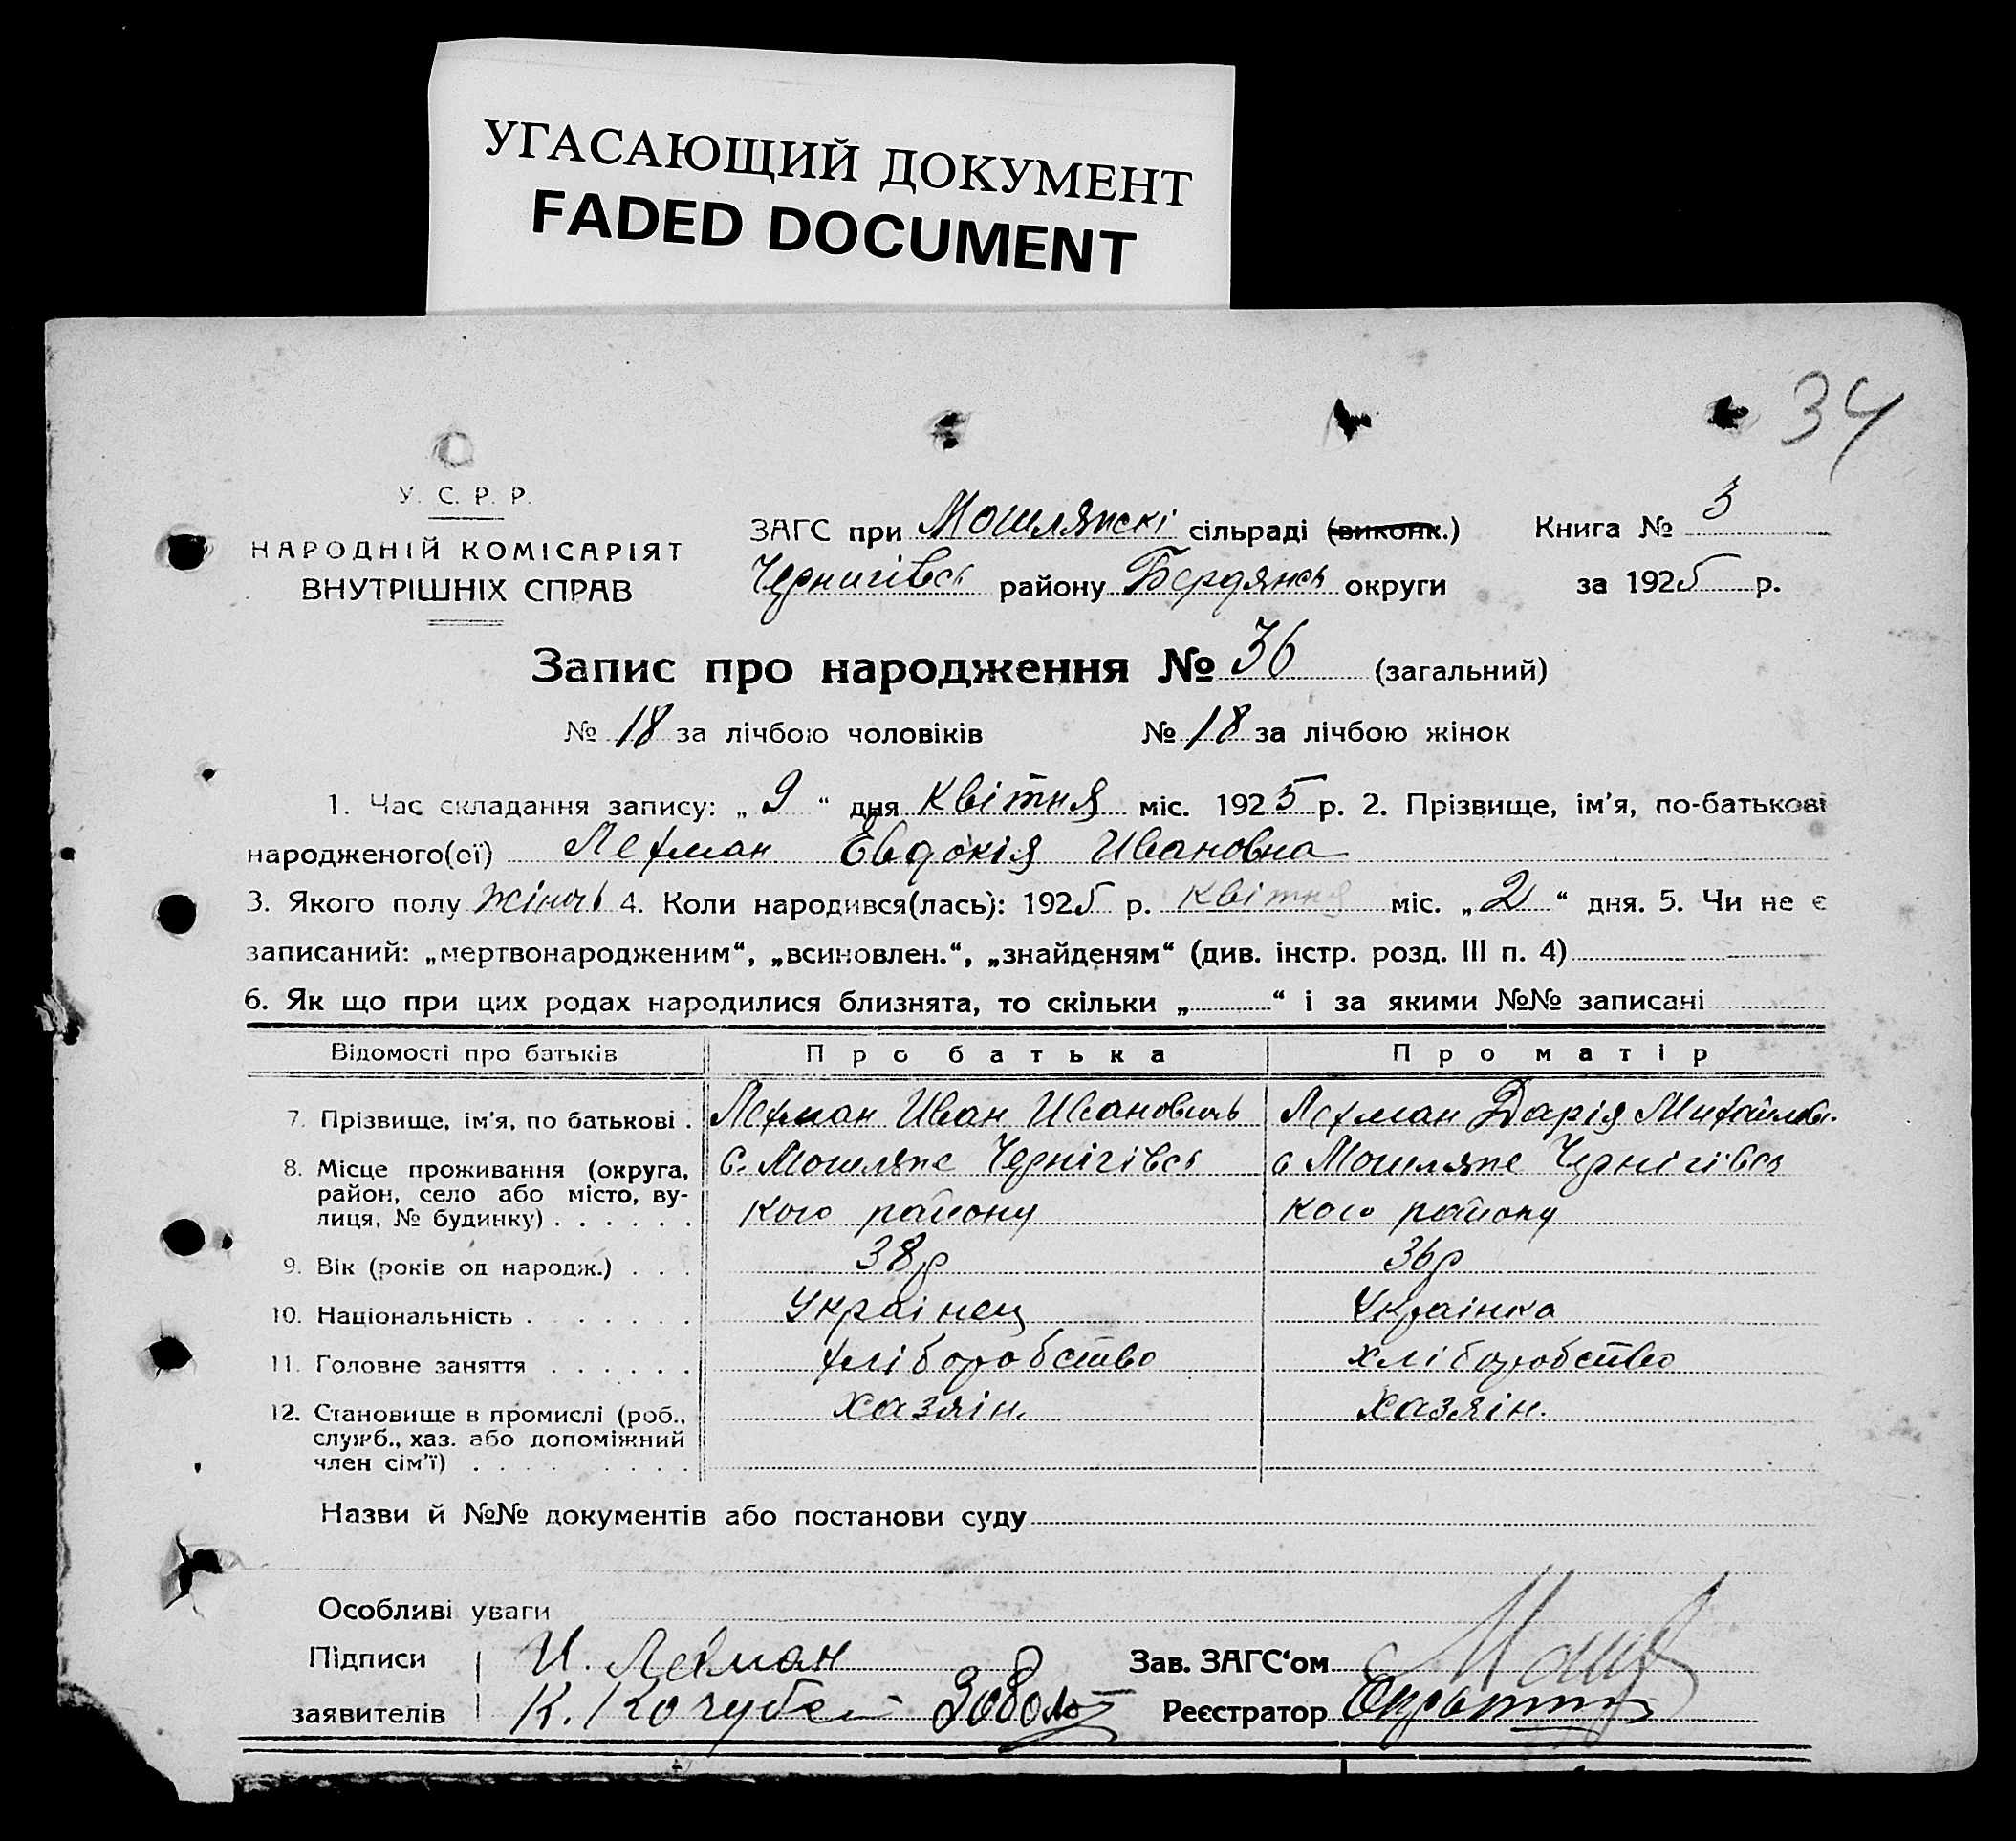 УГАСАЮЩИЙ ДОКУМЕНТ
FADED DOCUMENT
34
У. С. Р. Р.
НАРОДНІЙ КОМІСАРІЯТ
ВНУТРІШНІХ СПРАВ
ЗАГС при сільраді (виконк.) Книга № 3
Чернигівсь району Бердянсь округи за 1925 р.
Запис про народження № 36 (загальний)
№ 18 за лічбою чоловіків № 18 за лічбою жінок
1. Час складання запису: „ 9 “ дня Квітня міс. 1925 р. 2. Прізвище, ім'я, по-батькові
народженого(ої) Лехман Евдокія Ивановна
3. Якого полу жіночь 4. Коли народився(лась): 1925 р. Квітня міс. „ 2 “ дня. 5. Чи не є
записаний: „мертвонародженим“, „всиновлен.“, „знайденям“ (див. інстр. розд. III п. 4)
6. Як що при цих родах народилися близнята, то скільки „ “ і за якими №№ записані
Відомості про батьків Про батька Про матір
7. Прізвище, ім'я, по батькові . Лехман Иван Ивановичь Лехман Дарія Михайлов.
8. Місце проживання (округа, с. Чернігівсь с Чернігівсь
район, село або місто, ву-
лиця, № будинку) . . . . . . кого району кого району
9. Вік (років од народж.) . . . 38р 36р
10. Національність . . . . . . . Українец Українка
11. Головне заняття . . . . . . хліборобство хліборобство
12. Становище в промислі (роб., хазяін. хазяін.
служб., хаз. або допоміжний
член сім'ї) . . . . . . . . .
Назви й №№ документів або постанови суду
Особливі уваги
Підписи И. Лехман Зав. ЗАГС‘ом
заявителів К. Кочубей Реєстратор